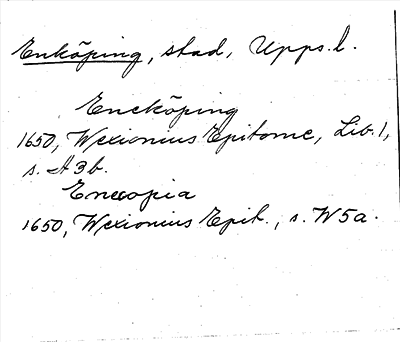 Enköping, stad, Upps. l.
Eneköping
1650, Wexionius Epitome, Lib. 1,
s. A3b.
Enecopia
1650, Wexionius Epit., s. W5a.